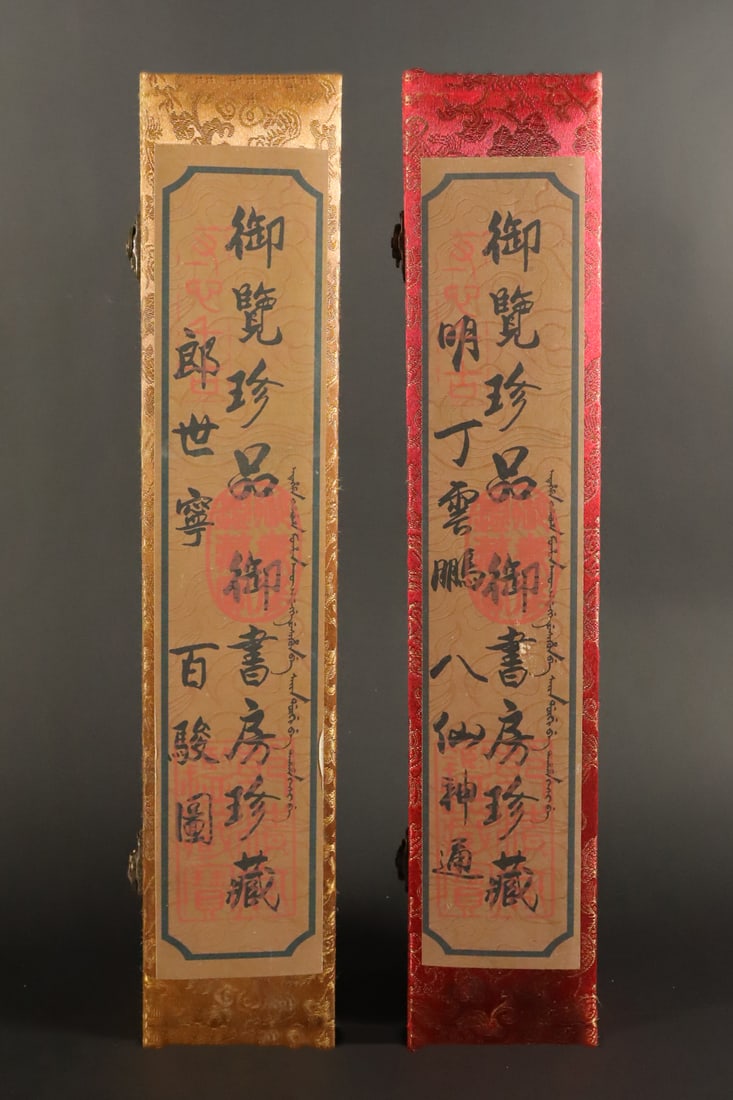 御覽珍品 御書房珍藏
郎世寧 百駿圖
御覽珍品 御書房珍藏
明 丁雲鵬 八仙神通